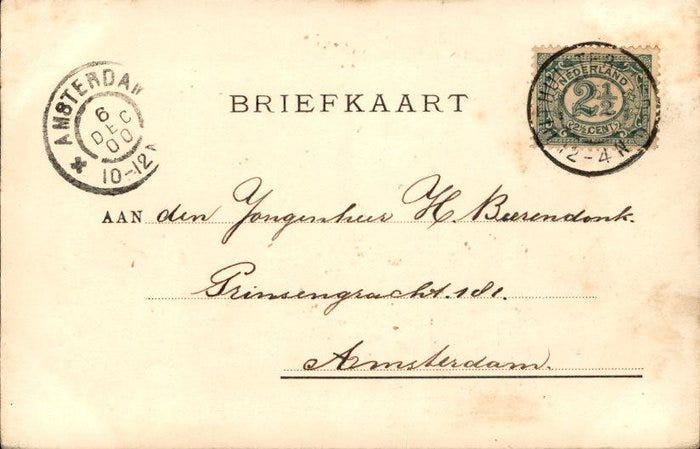 AMSTERDAM
6
DEC
00
10-12
BRIEFKAART
NEDERLAND
2½
2½ CENT
12-4 N
AAN den Jongenheer H. Beerendonk.
Prinsengracht. 181.
Amsterdam.